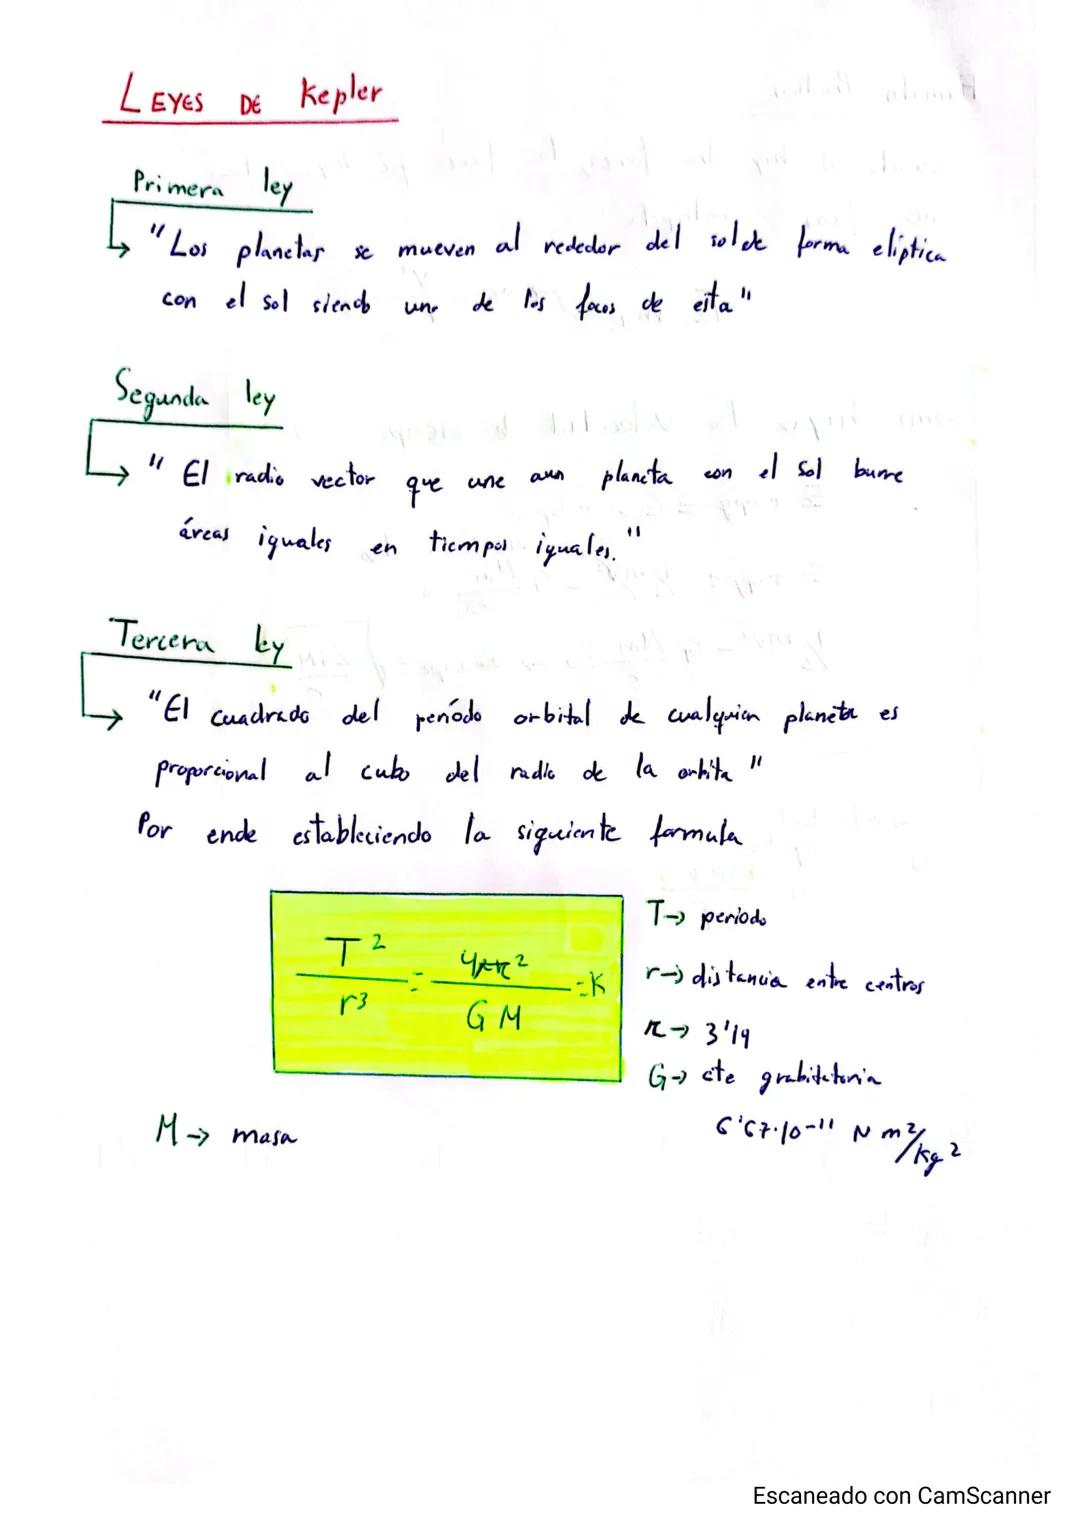 LEYES DE Kepler
Primera ley
"Los planetas se mueven al rededor del sol de forma eliptica
con el sol siendo uno de los focos de esta"
Segunda ley
"El radio vector que une aun planeta con el sol barre
áreas iguales en tiempos iguales."
Tercera ley
"El cuadrado del período orbital de cualquier planeta es
proporcional al cubo del radio de la orbita"
Por ende estableciendo la siguiente formula
T²/r³ = 4π²/GM = K
T→ periodo
r→ distancia entre centros
π→ 3'14
G→ cte grabitatoria
6'67·10-¹¹ N m²/kg²
M→ masa
Escaneado con CamScanner